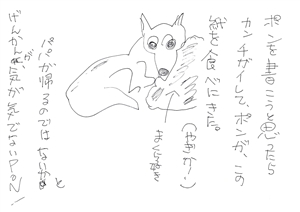 ポンを書こうと思ったら
カンチガイして、ポンが、この
紙を食べにきた。
(やぎか!)
まくら好き
パパが帰るのではないかと
げんかんが気が気でないPON!